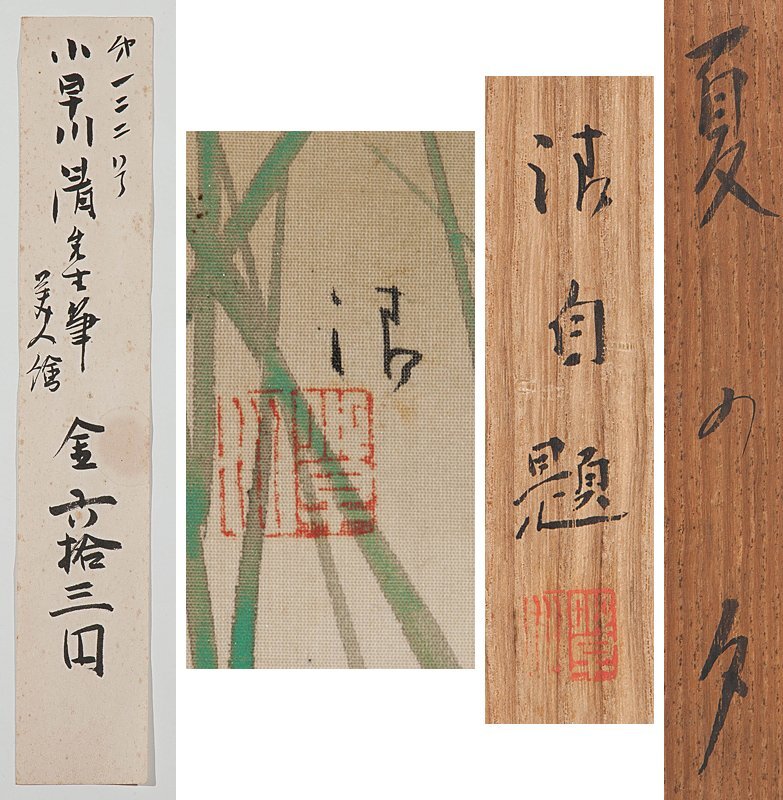 夏の夕
清自題
清
㐧一二二号
小早川清先生筆
美人繪
金六拾三円